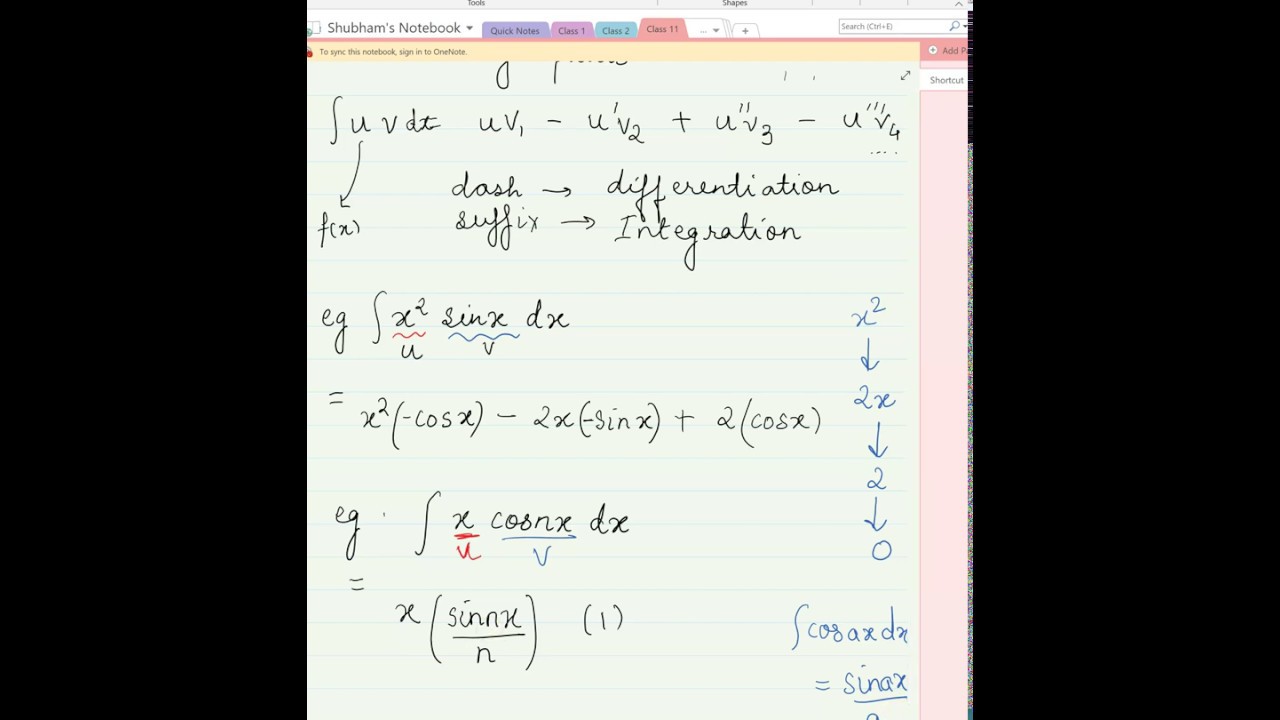 Tools Shapes
Shubham's Notebook Quick Notes Class 1 Class 2 Class 11 ... + Search (Ctrl+E)
To sync this notebook, sign in to OneNote.
Add P
Shortcut
∫ u v dx uv₁ - u'v₂ + u''v₃ - u'''v₄
....
f(x)
dash → differentiation
suffix → Integration
eg ∫ x² sinx dx
u v
= x²(-cosx) - 2x(-sinx) + 2(cosx)
x²
↓
2x
↓
2
↓
0
eg. ∫ x cosnx dx
u v
=
x (sinnx/n) (1)
∫cosax dx
= sinax